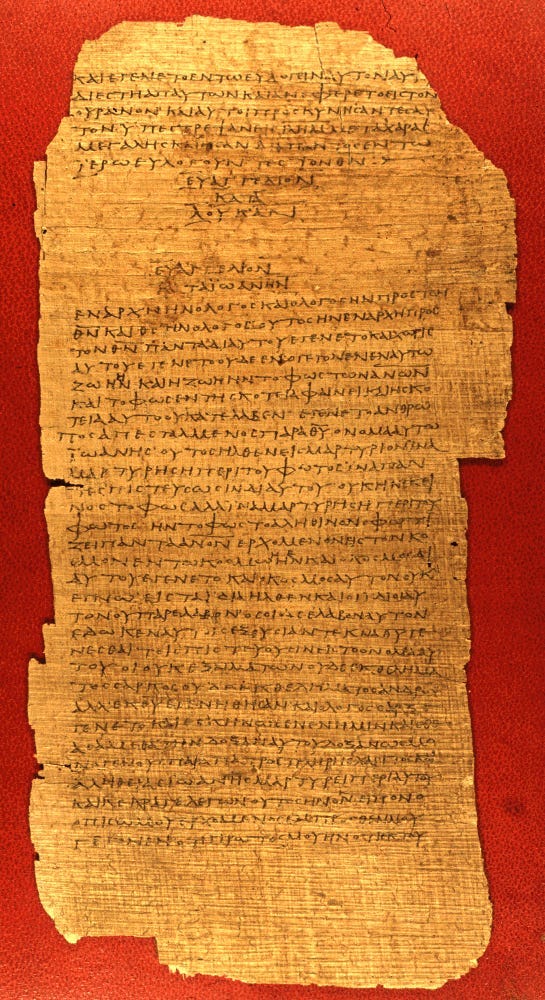 ΚΑΙΕΓΕΝΕΤΟΕΝΤΩΕΥΛΟΓΕΙΝΑΥΤΟΝΑΥΤ
ΔΙΕϹΤΗΑΠΑΥΤΩΝΚΑΙΑΝΕΦΕΡΕΤΟΕΙϹΤΟΝ
ΟΥΡΑΝΟΝΚΑΙΑΥΤΟΙΠΡΟϹΚΥΝΗϹΑΝΤΕϹΑΥ
ΤΟΝΥΠΕϹΤΡΕΨΑΝΕΙϹΙΛΗΜΜΕΤΑΧΑΡΑϹ
ΜΕΓΑΛΗϹΚΑΙΗϹΑΝΔΙΑΠΑΝΤΟϹΕΝΤΩ
ΙΕΡΩΕΥΛΟΓΟΥΝΤΕϹΤΟΝΘΝ
ΕΥΑΓΓΕΛΙΟΝ
ΚΑΤΑ
ΛΟΥΚΑΝ
ΕΥΑΓΓΕΛΙΟΝ
ΚΑΤΑΙΩΑΝΗΝ
ΕΝΑΡΧΗΗΝΟΛΟΓΟϹΚΑΙΟΛΟΓΟϹΗΝΠΡΟϹΤΟΝ
ΘΝΚΑΙΘϹΗΝΟΛΟΓΟϹΟΥΤΟϹΗΝΕΝΑΡΧΗΠΡΟϹ
ΤΟΝΘΝΠΑΝΤΑΔΙΑΥΤΟΥΕΓΕΝΕΤΟΚΑΙΧΩΡΙϹ
ΑΥΤΟΥΕΓΕΝΕΤΟΟΥΔΕΕΝΟΓΕΓΟΝΕΝΕΝΑΥΤΩ
ΖΩΗΗΝΚΑΙΗΖΩΗΗΝΤΟΦΩϹΤΩΝΑΝΩΝ
ΚΑΙΤΟΦΩϹΕΝΤΗϹΚΟΤΕΙΑΦΑΙΝΕΙΚΑΙΗϹΚΟ
ΤΕΙΑΑΥΤΟΟΥΚΑΤΕΛΑΒΕΝΕΓΕΝΕΤΟΑΝΘΡΩ
ΠΟϹΑΠΕϹΤΑΛΜΕΝΟϹΠΑΡΑΘΥΟΝΟΜΑΑΥΤΩ
ΙΩΑΝΗϹΟΥΤΟϹΗΛΘΕΝΕΙϹΜΑΡΤΥΡΙΟΝΙΝΑ
ΜΑΡΤΥΡΗϹΗΠΕΡΙΤΟΥΦΩΤΟϹΙΝΑΠΑΝ
ΤΕϹΠΙϹΤΕΥϹΩϹΙΝΔΙΑΥΤΟΥΟΥΚΗΝΕΚΕΙ
ΝΟϹΤΟΦΩϹΑΛΛΙΝΑΜΑΡΤΥΡΗϹΗΠΕΡΙΤΟΥ
ΦΩΤΟϹΗΝΤΟΦΩϹΤΟΑΛΗΘΙΝΟΝΟΦΩΤΙ
ΖΕΙΠΑΝΤΑΑΝΟΝΕΡΧΟΜΕΝΟΝΕΙϹΤΟΝΚΟ
ϹΜΟΝΕΝΤΩΚΟϹΜΩΗΝΚΑΙΟΚΟϹΜΟϹΔΙ
ΑΥΤΟΥΕΓΕΝΕΤΟΚΑΙΟΚΟϹΜΟϹΑΥΤΟΝΟΥΚ
ΕΓΝΩΕΙϹΤΑΙΔΙΑΗΛΘΕΝΚΑΙΟΙΙΔΙΟΙΑΥ
ΤΟΝΟΥΠΑΡΕΛΑΒΟΝΟϹΟΙΔΕΕΛΑΒΟΝΑΥΤΟΝ
ΕΔΩΚΕΝΑΥΤΟΙϹΕΞΟΥϹΙΑΝΤΕΚΝΑΘΥΓΕ
ΝΕϹΘΑΙΤΟΙϹΠΙϹΤΕΥΟΥϹΙΝΕΙϹΤΟΟΝΟΜΑΑΥ
ΤΟΥΟΙΟΥΚΕΞΑΙΜΑΤΩΝΟΥΔΕΕΚΘΕΛΗΜΑ
ΤΟϹϹΑΡΚΟϹΟΥΔΕΕΚΘΕΛΗΜΑΤΟϹΑΝΔΡΟϹ
ΑΛΛΕΚΘΥΕΓΕΝΗΘΗϹΑΝΚΑΙΟΛΟΓΟϹϹΑΡΞΕ
ΓΕΝΕΤΟΚΑΙΕϹΚΗΝΩϹΕΝΕΝΗΜΙΝΚΑΙΕΘΕ
ΑϹΑΜΕΘΑΤΗΝΔΟΞΑΝΑΥΤΟΥΔΟΞΑΝΩϹΜΟ
ΝΟΓΕΝΟΥϹΠΑΡΑΠΑΤΡΟϹΠΛΗΡΗϹΧΑΡΙΤΟϹΚΑΙ
ΑΛΗΘΕΙΑϹΙΩΑΝΗϹΜΑΡΤΥΡΕΙΠΕΡΙΑΥΤΟΥ
ΚΑΙΚΕΚΡΑΓΕΛΕΓΩΝΟΥΤΟϹΗΝΟΝΕΙΠΟΝΟ
ΟΠΙϹΩΜΟΥΕΡΧΟΜΕΝΟϹΕΜΠΡΟϹΘΕΝΜΟΥ
ΓΕΓΟΝΕΝΟΤΙΠΡΩΤΟϹΜΟΥΗΝΟΤΙΕΚΤΟΥ